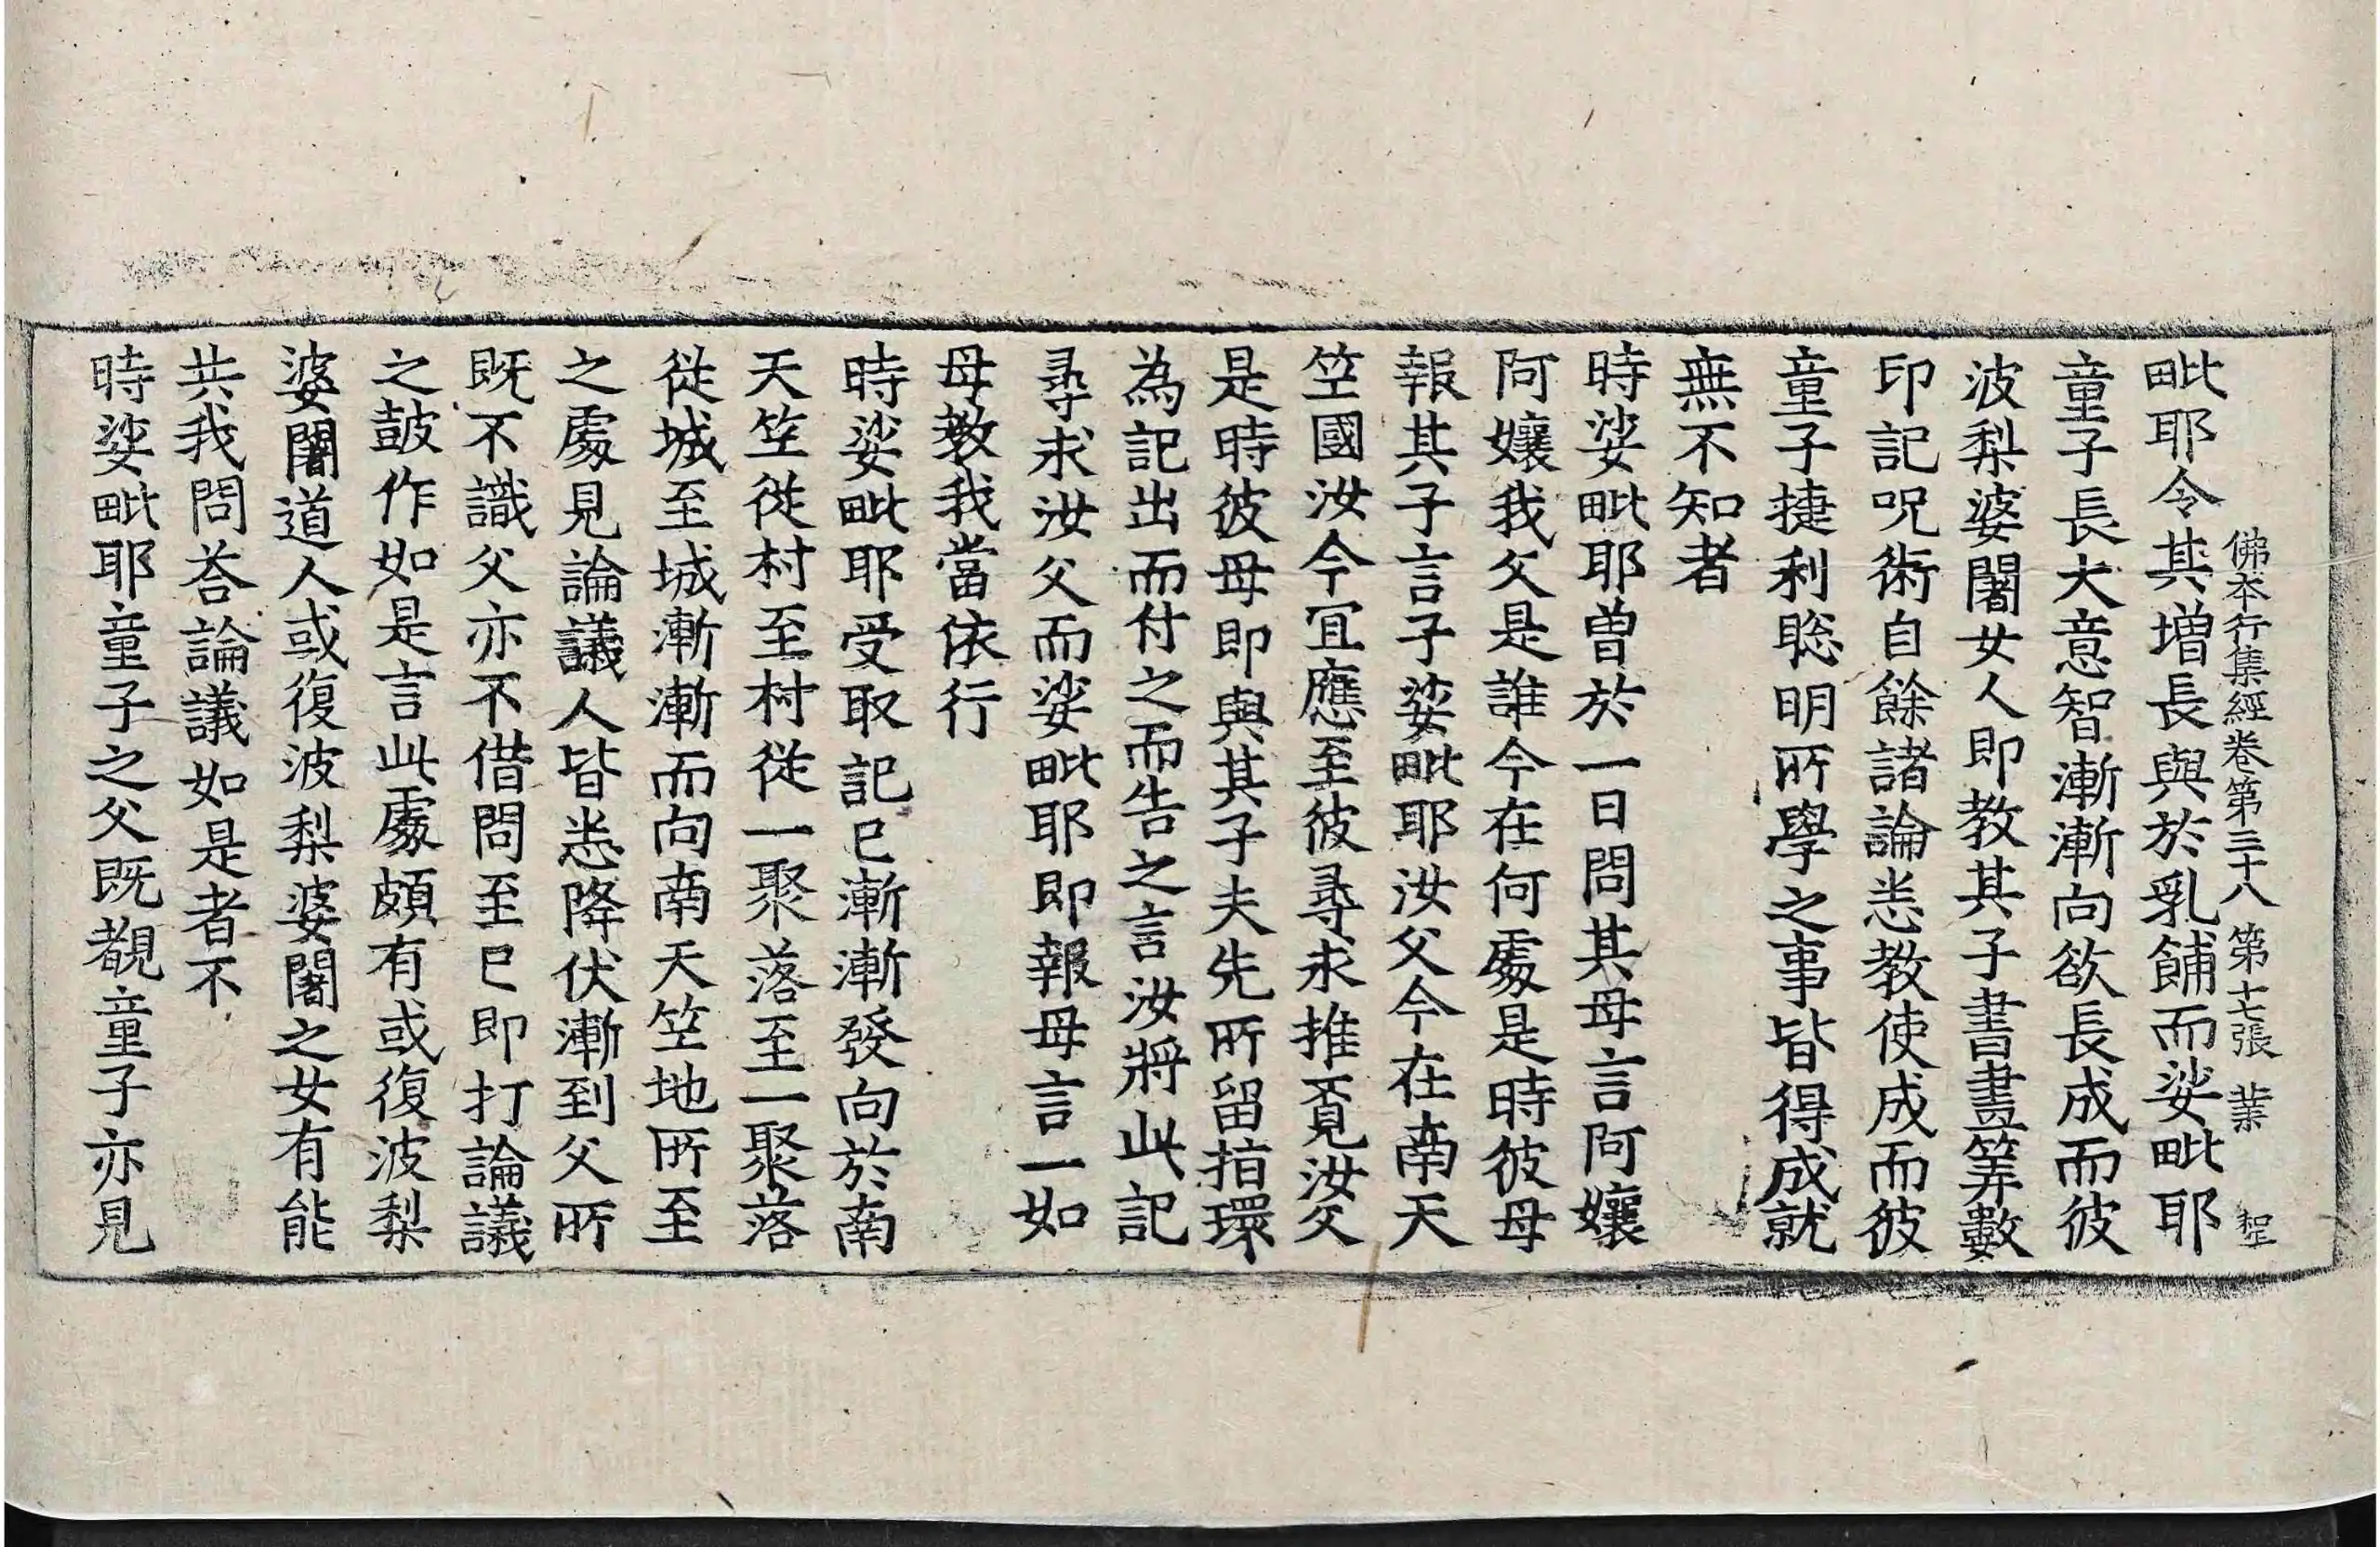 佛本行集經卷第三十八 第七張 業
毗耶令其增長與於乳餔而娑毗耶
童子長大意智漸漸向欲長成而彼
波梨婆闍女人即教其子書畫筭數
印記呪術自餘諸論悉教使成而彼
童子捷利聡明所學之事皆得成就
無不知者
時娑毗耶曾於一日問其母言阿孃
阿孃我父是誰今在何處是時彼母
報其子言子娑毗耶汝父今在南天
笁國汝今冝應至彼尋求推覓汝父
是時彼母即與其子夫先所留指環
為記出而付之而告之言汝將此記
尋求汝父而娑毗耶即報母言一如
母教我當依行
時娑毗耶受取記已漸漸發向於南
天笁從村至村從一聚落至一聚落
從城至城漸漸而向南天笁地所至
之處見論議人皆悉降伏漸到父所
既不識父亦不借問至已即打論議
之鼓作如是言此處頗有或復波梨
婆闍道人或復波梨婆闍之女有能
共我問荅論議如是者不
時娑毗耶童子之父既覩童子亦見